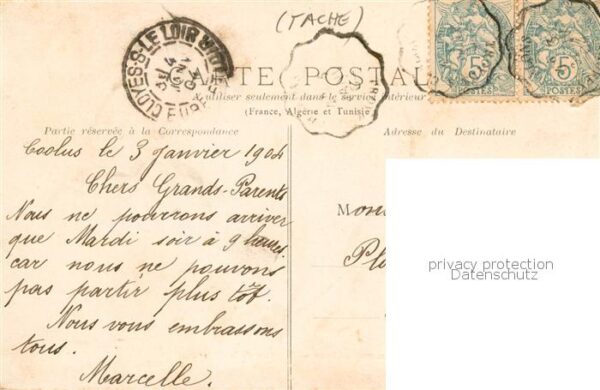 (TACHE)
CLOYES-S-LE LOIR
CARTE POSTALE
utiliser seulement dans le service intérieur
(France, Algérie et Tunisie)
Partie réservée à la Correspondance
Adresse du Destinataire
5
5
POSTES
POSTES
Coolus le 3 Janvier 1904
Chers Grands-Parents
Nous ne pouverons arriver
que Mardi soir à 9 heures
car nous ne pouvons
pas partir plus tôt.
Nous vous embrassons
tous.
Marcelle.
Mon
Pl
privacy protection
Datenschutz